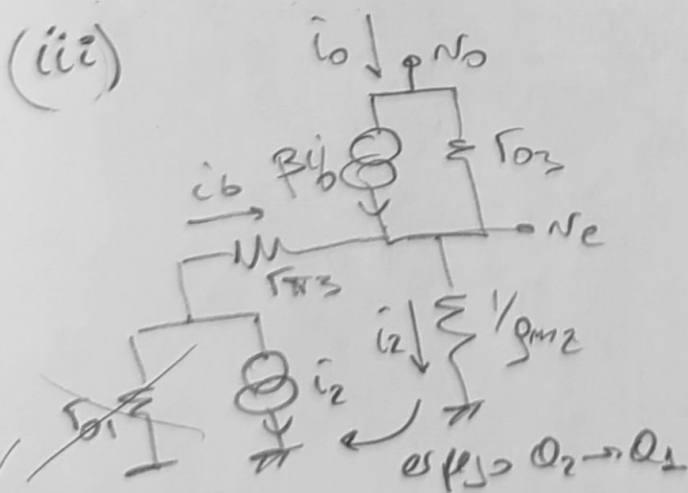 (iii)
i₀ v₀
βib r₀₃
ib
ve
rπ3
i₂ 1/gm2
i₂
r₀₁
espejo Q₂→Q₁